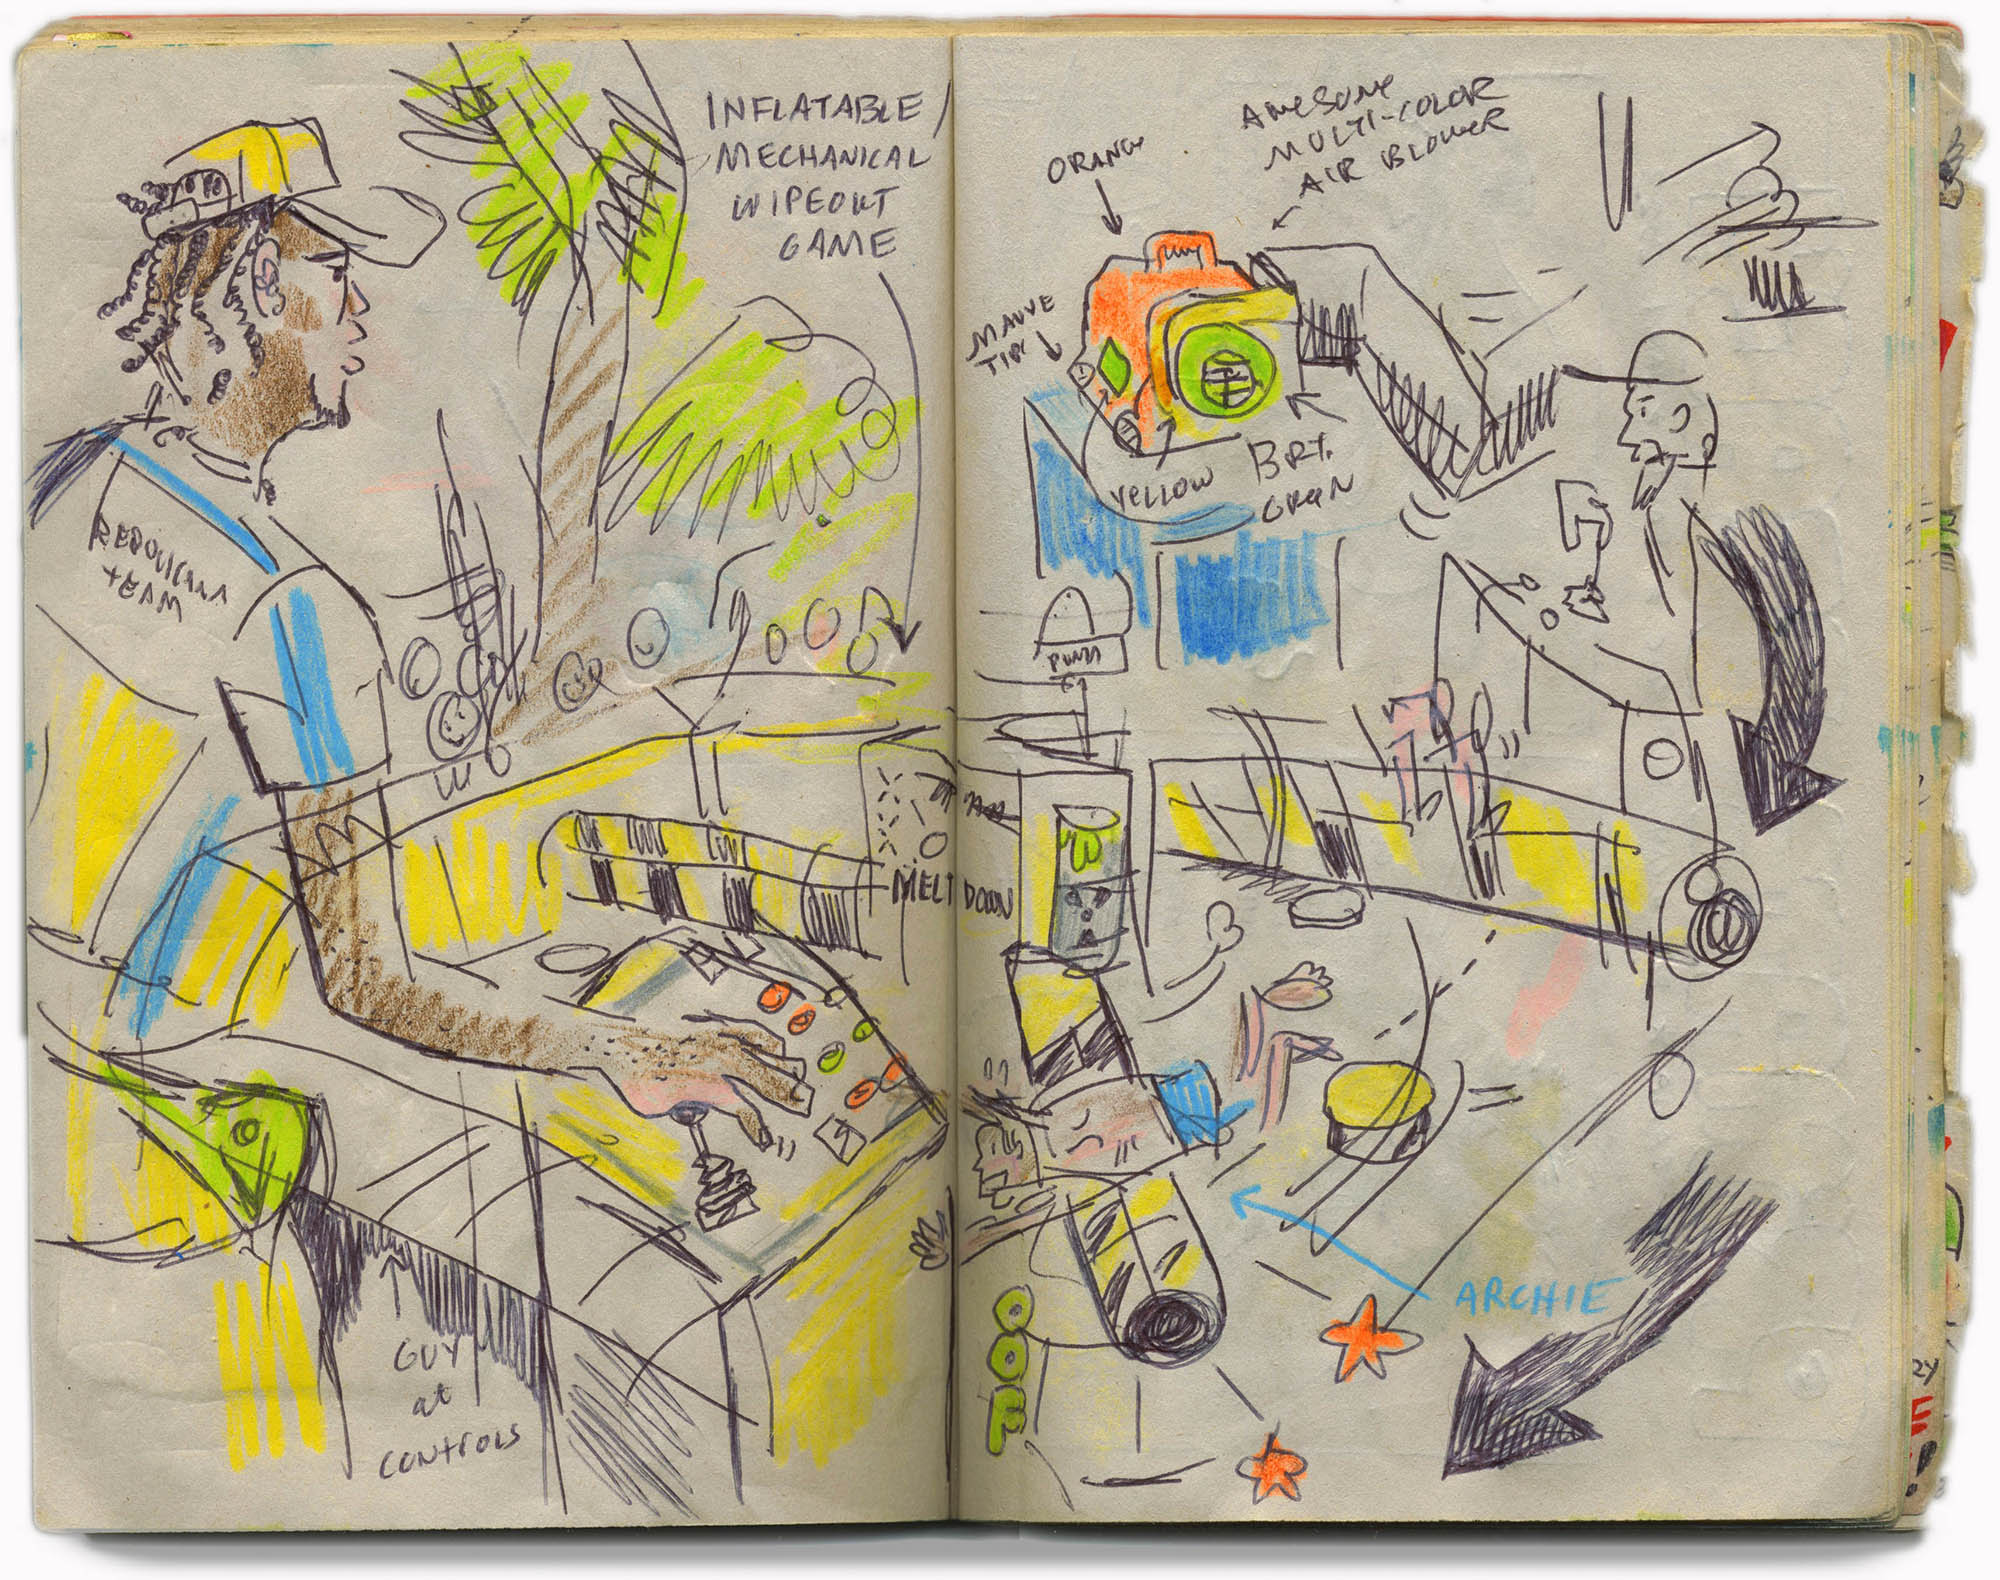 INFLATABLE/
MECHANICAL
WIPEOUT
GAME
TEAM
GUY
at
CONTROLS
MELT DOWN
OOF
ORANGE
AWESOME
MULTI-COLOR
AIR BLOWER
MAUVE
YELLOW
BRT.
GREEN
ARCHIE